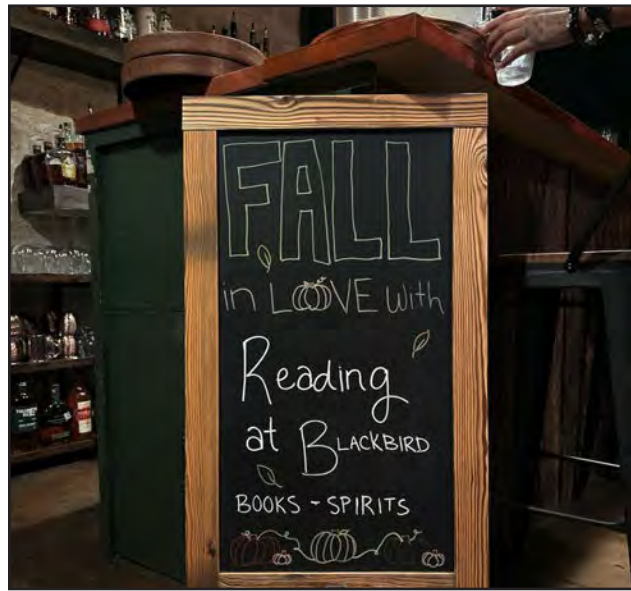 FALL
in LOVE with
Reading
at BLACKBIRD
BOOKS - SPIRITS